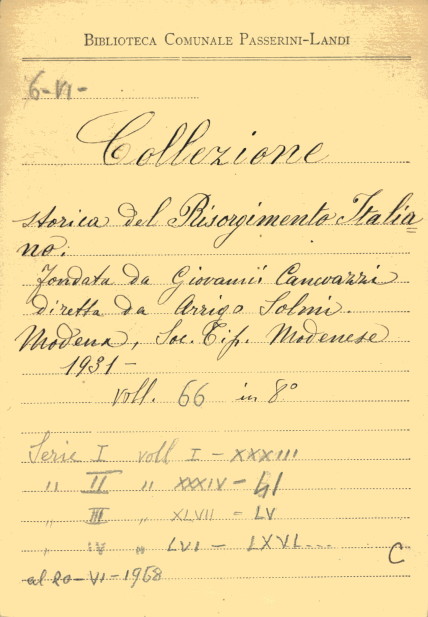 BIBLIOTECA COMUNALE PASSERINI-LANDI
6-VI-
Collezione
storica del Risorgimento Italia=
no.
fondata da Giovanni Canevazzi
diretta da Arrigo Solmi.
Modena, Soc. Tip. Modenese
1931-
voll. 66 in 8°
Serie I voll I - XXXIII
" II " XXXIV -
" III " XLVII = LV
" IV " LVI - LXVI...
C
al 20-VI-1958